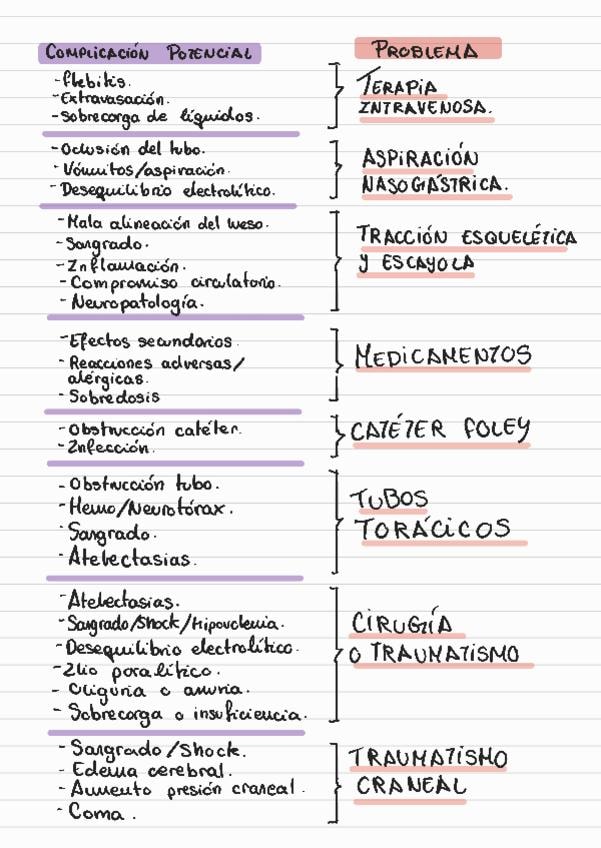 COMPLICACIÓN POTENCIAL
PROBLEMA
-Flebitis.
-Extravasación.
-Sobrecarga de líquidos.
TERAPIA
INTRAVENOSA.
-Oclusión del tubo.
-Vómitos/aspiración.
-Desequilibrio electrolítico.
ASPIRACIÓN
NASOGÁSTRICA.
-Mala alineación del hueso.
-Sangrado.
-Inflamación.
-Compromiso circulatorio.
-Neuropatología.
TRACCIÓN ESQUELÉTICA
Y ESCAYOLA
-Efectos secundarios
-Reacciones adversas/
alérgicas.
-Sobredosis
MEDICAMENTOS
-Obstrucción catéter.
-Infección.
CATÉTER FOLEY
-Obstrucción tubo.
-Hemo/Neurotórax.
-Sangrado.
-Atelectasias.
TUBOS
TORÁCICOS
-Atelectasias.
-Sangrado/Shock/Hipovolemia.
-Desequilibrio electrolítico.
-Ilio paralítico.
-Oliguria o anuria.
-Sobrecarga o insuficiencia.
CIRUGÍA
O TRAUMATISMO
-Sangrado/Shock.
-Edema cerebral.
-Aumento presión craneal.
-Coma.
TRAUMATISMO
CRANEAL